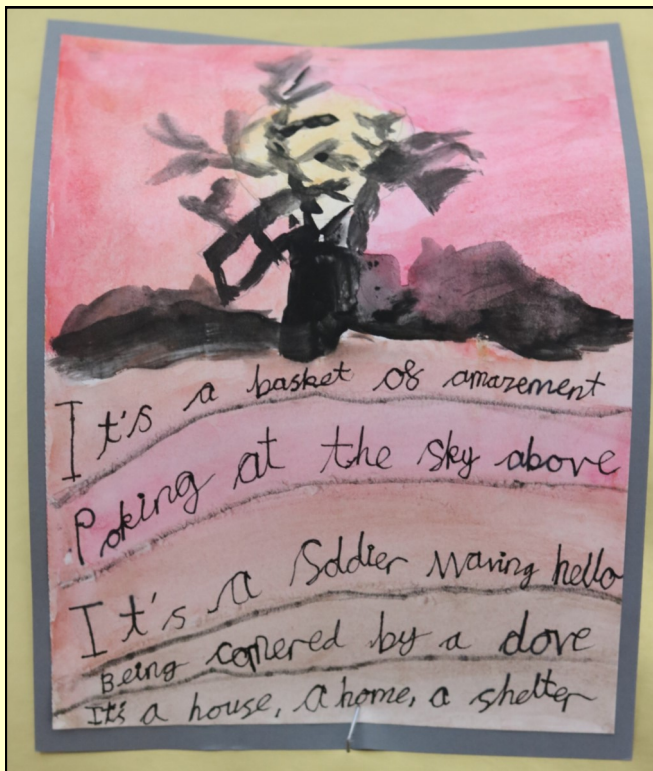 It's a basket of amazement
Poking at the sky above
It's a Soldier waving hello
Being comered by a dove
It's a house, a home, a shelter